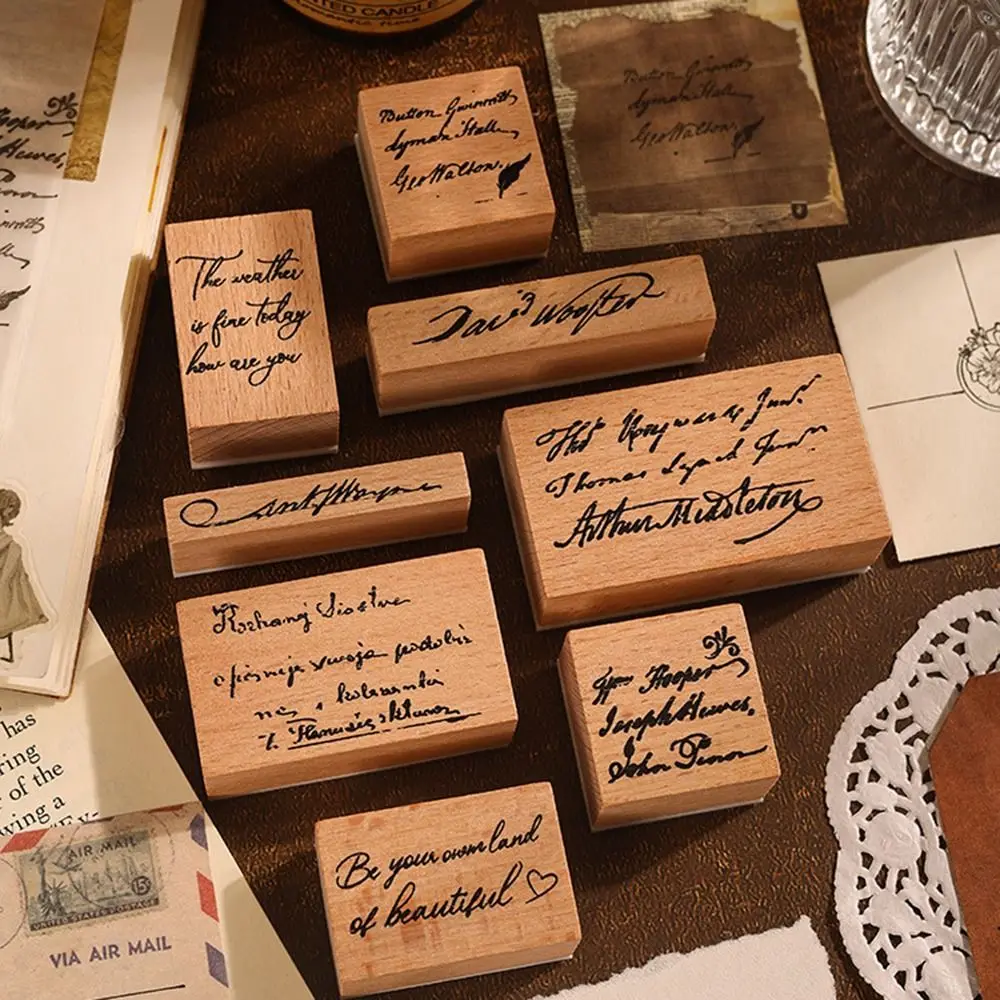 TED CANDLE
Button Gwinnett
Lyman Hall
Geo Walton.
Button Gwinnett
Lyman Hall
Geo Walton.
The weather
is fine today
how are you
David Wooster
Thos Heyward Junr.
Thomas Lynch Junr.
Arthur Middleton
Anty Wayne
Kochanej Siostrze
Wm Hooper
Joseph Hewes,
John Penn
Be your own land
of beautiful
Hooper
Hewes,
has
ring
of the
wing a
"Ex-
AIR MAIL
15¢
UNITED STATES POSTAGE
VIA AIR MAIL